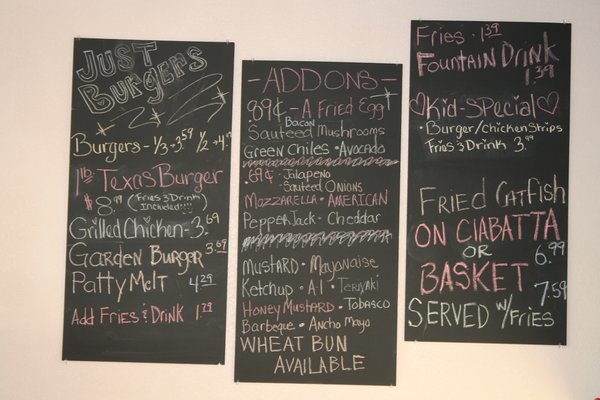 JUST
BURGERS
Burgers - 1/3 - 3.59 1/2 + 4.
1 lb Texas Burger
$8.99 (Fries & Drink
Included!!!)
Grilled Chicken - 3.69
Garden Burger 3.69
Patty Melt 4.29
Add Fries & Drink 1.29
- ADDONS -
89¢ - A Fried Egg
Bacon
Sauteed Mushrooms
Green Chiles • Avocado
.69¢ • Jalapeno
Sauteed Onions
Mozzarella • AMERICAN
PepperJack • Cheddar
Mustard • Mayonaise
Ketchup • A-1 • Teriyaki
Honey Mustard • Tobasco
Barbeque • Ancho Mayo
WHEAT BUN
AVAILABLE
Fries • 1.39
Fountain Drink
1.39
Kid-Special
• Burger/Chicken Strips
Fries & Drink 3.99
FRIED CATFISH
ON CIABATTA
OR 6.99
BASKET 7.59
SERVED w/FRIES